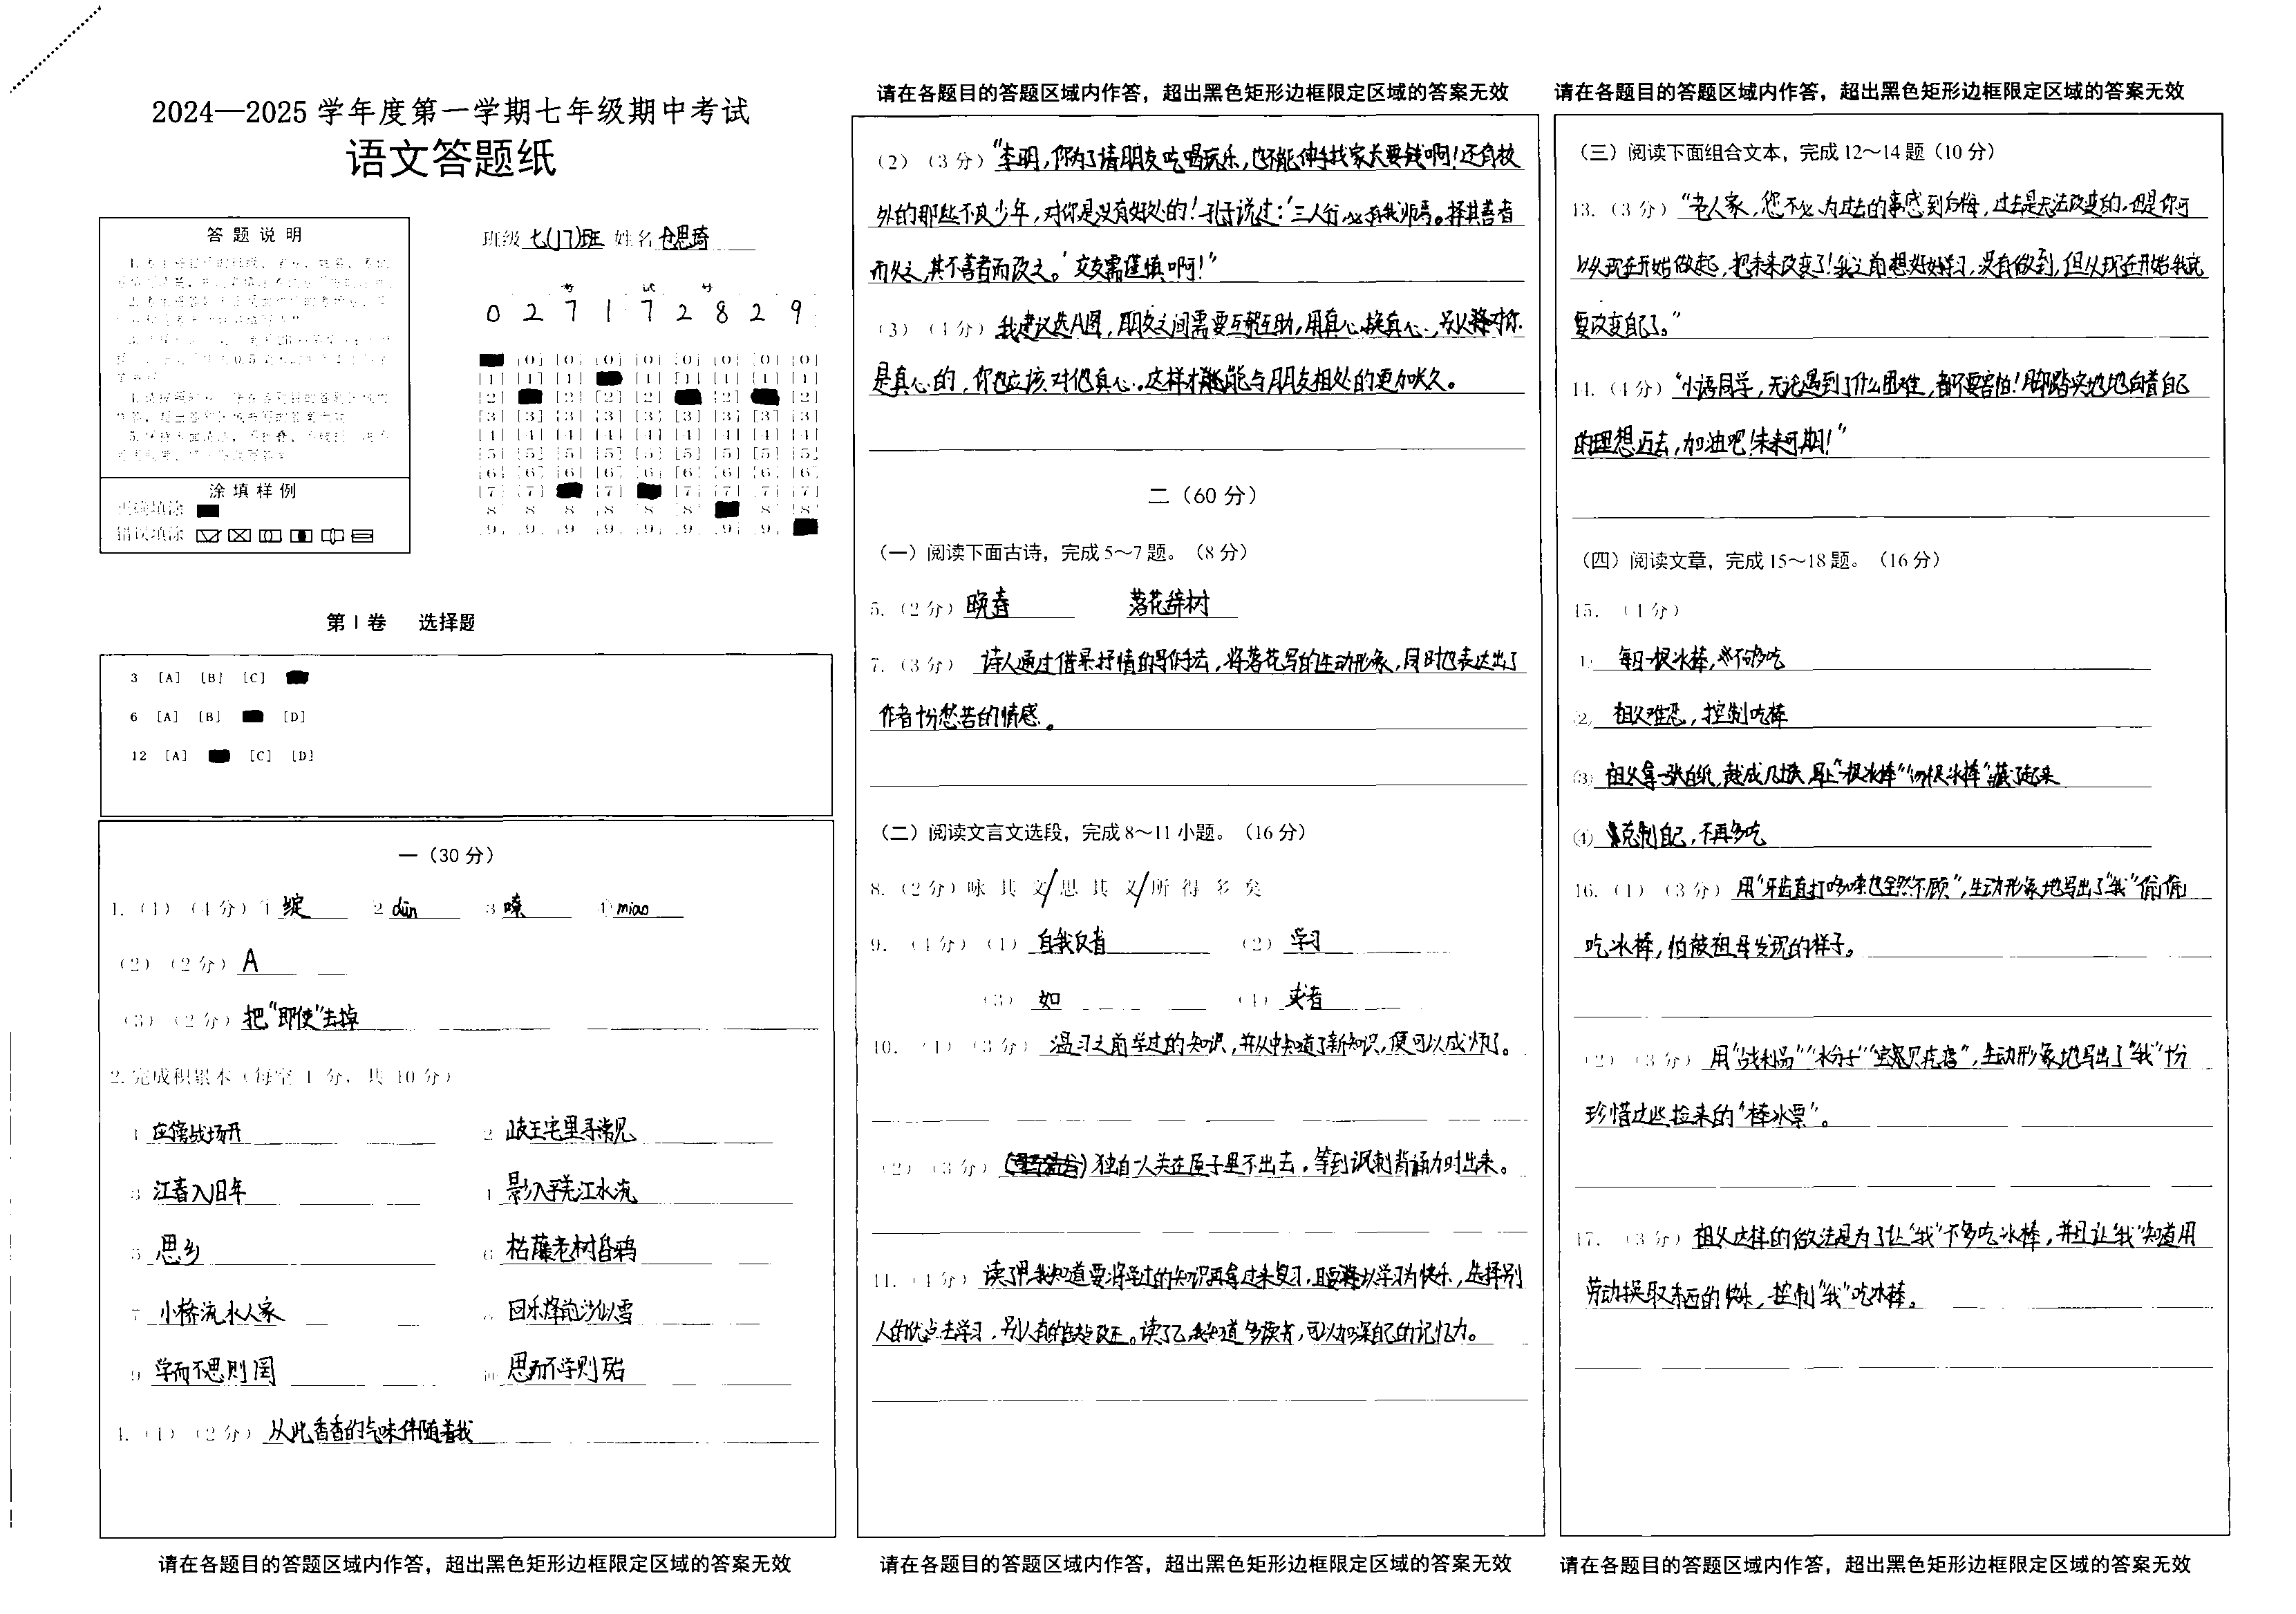 2024—2025 学年度第一学期七年级期中考试
语文答题纸
答 题 说 明
涂 填 样 例
正确填涂
错误填涂
班级 七(17)班 姓名
考 试 号
0 2 7 1 7 2 8 2 9
[0] [0] [0] [0] [0] [0] [0] [0]
[1] [1] [1] [1] [1] [1] [1] [1]
[2] [2] [2] [2] [2] [2]
[3] [3] [3] [3] [3] [3] [3] [3] [3]
[4] [4] [4] [4] [4] [4] [4] [4] [4]
[5] [5] [5] [5] [5] [5] [5] [5] [5]
[6] [6] [6] [6] [6] [6] [6] [6] [6]
[7] [7] [7] [7] [7] [7] [7]
[8] [8] [8] [8] [8] [8] [8] [8]
[9] [9] [9] [9] [9] [9] [9] [9]
第 I 卷 选择题
3 [A] [B] [C]
6 [A] [B] [D]
12 [A] [C] [D]
一（30 分）
1.（1）（4 分）① 绽 2 dūn 3 嘹 4 miao
（2）（2 分）A
（3）（2 分）把“即使”去掉
2.完成积累本（每空 1 分，共 10 分）
1 应傍战场开 2 岐王宅里寻常见
3 江春入旧年 4 影入平羌江水流
5 思乡 6 枯藤老树昏鸦
7 小桥流水人家 8 回乐烽前沙似雪
9 学而不思则罔 10 思而不学则殆
4.（1）（2 分）从此香香的气味伴随着我
请在各题目的答题区域内作答，超出黑色矩形边框限定区域的答案无效
请在各题目的答题区域内作答，超出黑色矩形边框限定区域的答案无效
（2）（3 分）“李明，你为了请朋友吃喝玩乐，也不能伸手找家长要钱啊！还有校
外的那些不良少年，对你是没有好处的！孔子说过：‘三人行，必有我师焉。择其善者
而从之，其不善者而改之。’交友需谨慎啊！”
（3）（4 分）我建议选A图，朋友之间需要互帮互助，用真心换真心，别人对你
是真心的，你也应该对他真心。这样才能与朋友相处的更加永久。
二（60 分）
（一）阅读下面古诗，完成 5～7 题。（8 分）
5.（2 分）晚春 落花辞树
7.（3 分）诗人通过借景抒情的写作手法，将落花写的生动形象，同时也表达出了
作者十份愁苦的情感。
（二）阅读文言文选段，完成 8～11 小题。（16 分）
8.（2 分）咏 其 文/思 其 义/所 得 多 矣
9.（4 分）（1）自我反省 （2）学习
（3）如 （4）求者
10.（1）（3 分）温习之前学过的知识，并从中知道了新知识，便可以成师了。
（2）（3 分）独自一人关在屋子里不出去，等到讽刺背诵力时出来。
11.（4 分）读了甲我知道要将学过的知识再拿过来复习，且要以学习为快乐，选择别
人的优点去学习，别人有的缺点改正。读了乙我知道多读书，可以加深自己的记忆力。
请在各题目的答题区域内作答，超出黑色矩形边框限定区域的答案无效
请在各题目的答题区域内作答，超出黑色矩形边框限定区域的答案无效
（三）阅读下面组合文本，完成 12～14 题（10 分）
13.（3 分）“老人家，您不必为过去的事感到后悔，过去是无法改变的，但是你可
以从现在开始做起，把未来改变了！我之前想好好学习，没有做到，但从现在开始我就
要改变自己了。”
14.（4 分）“小语同学，无论遇到了什么困难，都不要害怕！脚踏实地地向着自己
的理想迈去，加油吧！未来可期！”
（四）阅读文章，完成 15～18 题。（16 分）
15.（4 分）
1) 每日一根冰棒，不够吃
(2) 祖父难忍，控制吃棒
(3) 祖父拿一张白纸，裁成几块，写上“一根冰棒”“四根冰棒”藏了起来
(4) 克制自己，不再多吃
16.（1）（3 分）用“牙齿直打哆嗦也全然不顾”，生动形象地写出了“我”偷偷
吃冰棒，怕被祖母发现的样子。
（2）（3 分）用“战利品”，生动形象地写出了“我”十份
珍惜这些捡来的“棒冰票”。
17.（3 分）祖父这样的做法是为了让“我”不多吃冰棒，并且让“我”知道用
劳动换取东西的快乐，控制“我”吃冰棒。
请在各题目的答题区域内作答，超出黑色矩形边框限定区域的答案无效